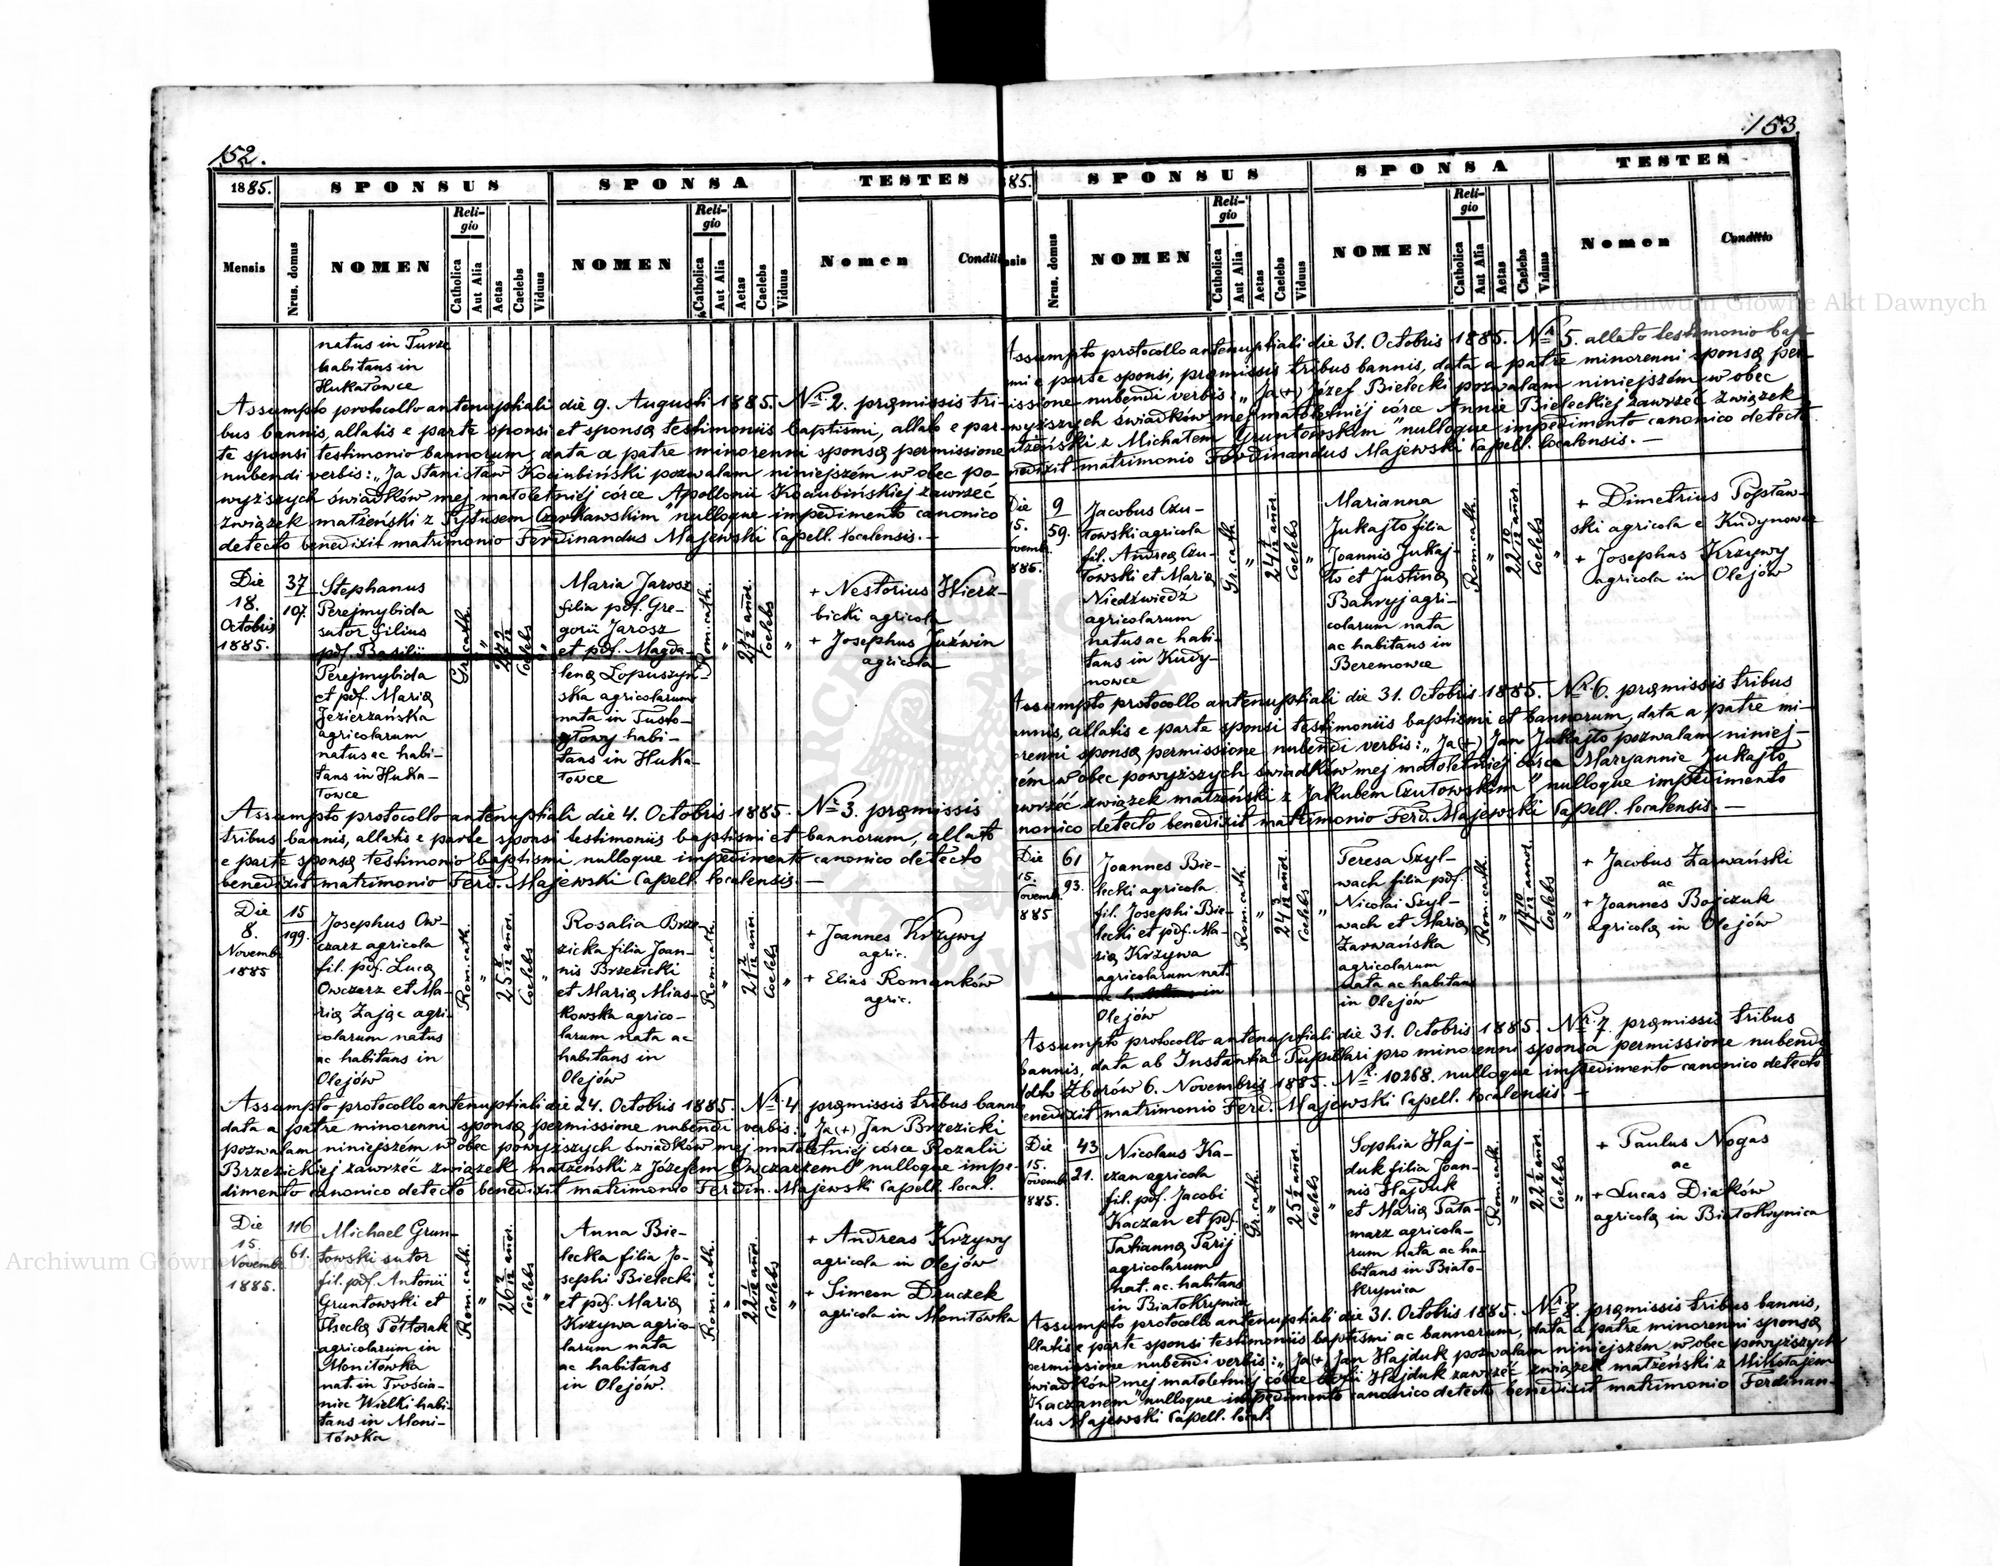 152.
1885.
SPONSUS
SPONSA
TESTES
Mensis
Nrus. domus
NOMEN
Religio
Catholica
Aut Alia
Aetas
Caelebs
Viduus
NOMEN
Religio
Catholica
Aut Alia
Aetas
Caelebs
Viduus
Nomen
natus in Turze
habitans in
Hukałowce
Assumpto protocollo antenuptiali die 9. Augusti 1885. Nr. 2. præmissis tri-
bus bannis, allatis e parte sponsi et sponsæ testimoniis baptismi, allato e par-
te sponsi testimonio bannorum, data a patre minorenni sponsæ permissione
nubendi verbis: „Ja Stanisław Kociubiński pozwalam niniejszém w obec po-
wyższych świadków mej małoletniej córce Apollonii Kociubińskiej zawrzeć
związek małżeński z Tytusem Czerkawskim" nulloque impedimento canonico
detecto benedixit matrimonio Ferdinandus Majewski Capell. localensis. —
Die
18.
Octobris
1885.
37
107.
Stephanus
Perejmybida
sutor filius
pdf. Basilii
Perejmybida
et pdf. Mariæ
Jezierzańska
agricolarum
natus ac habi-
tans in Huka-
łowce
Gr. cath.
"
Coelebs
"
Maria Jarosz
filia pdf. Gre-
gorii Jarosz
et pdf. Magda-
lenæ Łopuszyń-
ska agricolarum
nata in Tusto-
głowy habi-
tans in Huka-
łowce
Rom. cath.
"
Coelebs
"
+ Nestorius Wierz-
bicki agricola
+ Josephus Juźwin
agricola
Assumpto protocollo antenuptiali die 4. Octobris 1885. Nr. 3. præmissis
tribus bannis, allatis e parte sponsi testimoniis baptismi et bannorum, allato
e parte sponsæ testimonio baptismi, nulloque impedimento canonico detecto
benedixit matrimonio Ferd. Majewski Capell. localensis. —
Die
8.
Novemb.
1885
15
199.
Josephus Ow-
czarz agricola
fil. pdf. Lucæ
Owczarz et Ma-
riæ Zając agri-
colarum natus
ac habitans in
Olejów
Rom. cath.
"
25 8/12 añor.
Coelebs
"
Rosalia Brze-
zicka filia Joan-
nis Brzezicki
et Mariæ Mias-
kowska agrico-
larum nata ac
habitans in
Olejów
Rom. cath.
"
21 2/12 añor.
Coelebs
"
+ Joannes Krzywy
agric.
+ Elias Romanków
agric.
Assumpto protocollo antenuptiali die 24. Octobris 1885. Nr. 4 præmissis tribus bann
data a patre minorenni sponsæ permissione nubendi verbis: „Ja (+) Jan Brzezicki
pozwalam niniejszém w obec powyższych świadków mej małoletniej córce Rozalii
Brzezickiej zawrzéć związek małżeński z Józefem Owczarzem" nulloque impe-
dimento canonico detecto benedixit matrimonio Ferdin. Majewski Capell. local.
Die
15.
Novemb.
1885.
116
61.
Michael Grun-
towski sutor
fil. pdf. Antonii
Gruntowski et
Theclæ Półtorak
agricolarum in
Monitówka
nat. in Trościa-
niec Wielki habi-
tans in Moni-
tówka
Rom. cath.
"
Coelebs
"
Anna Bie-
lecka filia Jo-
sephi Bielecki
et pdf. Mariæ
Krzywa agrico-
larum nata
ac habitans
in Olejów.
Rom. cath.
"
Coelebs
"
+ Andreas Krzywy
agricola in Olejów
+ Simeon Druczek
agricola in Monitówka
153.
85.
SPONSUS
SPONSA
TESTES
Nrus. domus
NOMEN
Religio
Catholica
Aut Alia
Aetas
Caelebs
Viduus
NOMEN
Religio
Catholica
Aut Alia
Aetas
Caelebs
Viduus
Nomen
Conditio
Assumpto protocollo antenuptiali die 31. Octobris 1885. Nr. 5. allato testimonio bap-
mi e parte sponsi, præmissis tribus bannis, data a patre minorenni sponsæ per-
issione nubendi verbis: „Ja (+) Józef Bielecki pozwalam niniejszém w obec
wyższych świadków mej małoletniej córce Annie Bieleckiej zawrzéć związek
ałżeński z Michałem Gruntowskim" nulloque impedimento canonico detecto
nedixit matrimonio Ferdinandus Majewski Capell. localensis. —
Die
15.
ovemb.
885.
9
59.
Jacobus Czu-
towski agricola
fil. Andreæ Czu-
towski et Mariæ
Niedźwiedź
agricolarum
natus ac habi-
tans in Kudy-
nowce
Gr. cath.
"
Coelebs
"
Marianna
Jukajło filia
Joannis Jukaj-
ło et Justinæ
Bahryj agri-
colarum nata
ac habitans in
Beremowce
Rom. cath.
"
22 10/12 añor.
Coelebs
"
+ Dimetrius Popław-
ski agricola e Kudynowce
+ Josephus Krzywy
agricola in Olejów
Assumpto protocollo antenuptiali die 31. Octobris 1885. Nr. 6. præmissis tribus
annis, allatis e parte sponsi testimoniis baptismi et bannorum, data a patre mi-
orenni sponsæ permissione nubendi verbis: „Ja (+) Jan Jukajło pozwalam niniej-
zém w obec powyższych świadków mej małoletniej córce Maryannie Jukajło
awrzéć związek małżeński z Jakubem Czutowskim" nulloque impedimento
nonico detecto benedixit matrimonio Ferd. Majewski Capell. localensis. —
Die
15.
Novemb.
1885
61
93.
Joannes Bie-
lecki agricola
fil. Josephi Bie-
lecki et pdf. Ma-
riæ Krzywa
agricolarum nat.
ac habitans in
Olejów
Rom. cath.
"
Coelebs
"
Teresa Szyl-
wach filia pdf.
Nicolai Szyl-
wach et Mariæ
Zarwańska
agricolarum
nata ac habitans
in Olejów
Rom. cath.
"
17 10/12 annor.
Coelebs
"
+ Jacobus Zarwański
ac
+ Joannes Bojczuk
agricolæ in Olejów
Assumpto protocollo antenuptiali die 31. Octobris 1885. Nr. 7. præmissis tribus
bannis, data ab Instantia Pupillari pro minorenni sponsa permissione nubendi
ddto Zborów 6. Novembris 1885. Nr. 10268. nulloque impedimento canonico detecto
enedixit matrimonio Ferd. Majewski Capell. localensis. —
Die
15.
Novemb.
1885.
43
21.
Nicolaus Ka-
czan agricola
fil. pdf. Jacobi
Kaczan et pdf.
Tatiannæ Parij
agricolarum
nat. ac. habitans
in Białokrynica
Gr. cath.
"
Coelebs
"
Sophia Haj-
duk filia Joan-
nis Hajduk
et Mariæ Tata-
marz agricola-
rum nata ac ha-
bitans in Biało-
krynica
Rom. cath.
"
Coelebs
"
+ Paulus Nogas
ac
+ Lucas Diaków
agricolæ in Białokrynica
Assumpto protocollo antenuptiali die 31. Octobris 1885. Nr. 8. præmissis tribus bannis,
llatis e parte sponsi testimoniis baptismi ac bannorum, data a patre minorenni sponsæ
permissione nubendi verbis: „Ja (+) Jan Hajduk pozwalam niniejszém w obec powyższych
świadków mej małoletniej córce Zofii Hajduk zawrzéć związek małżeński z Mikołajem
Kaczanem" nulloque impedimento canonico detecto benedixit matrimonio Ferdinan-
dus Majewski Capell. local.
Archiwum Główne Akt Dawnych
Archiwum Główne Akt Dawnych